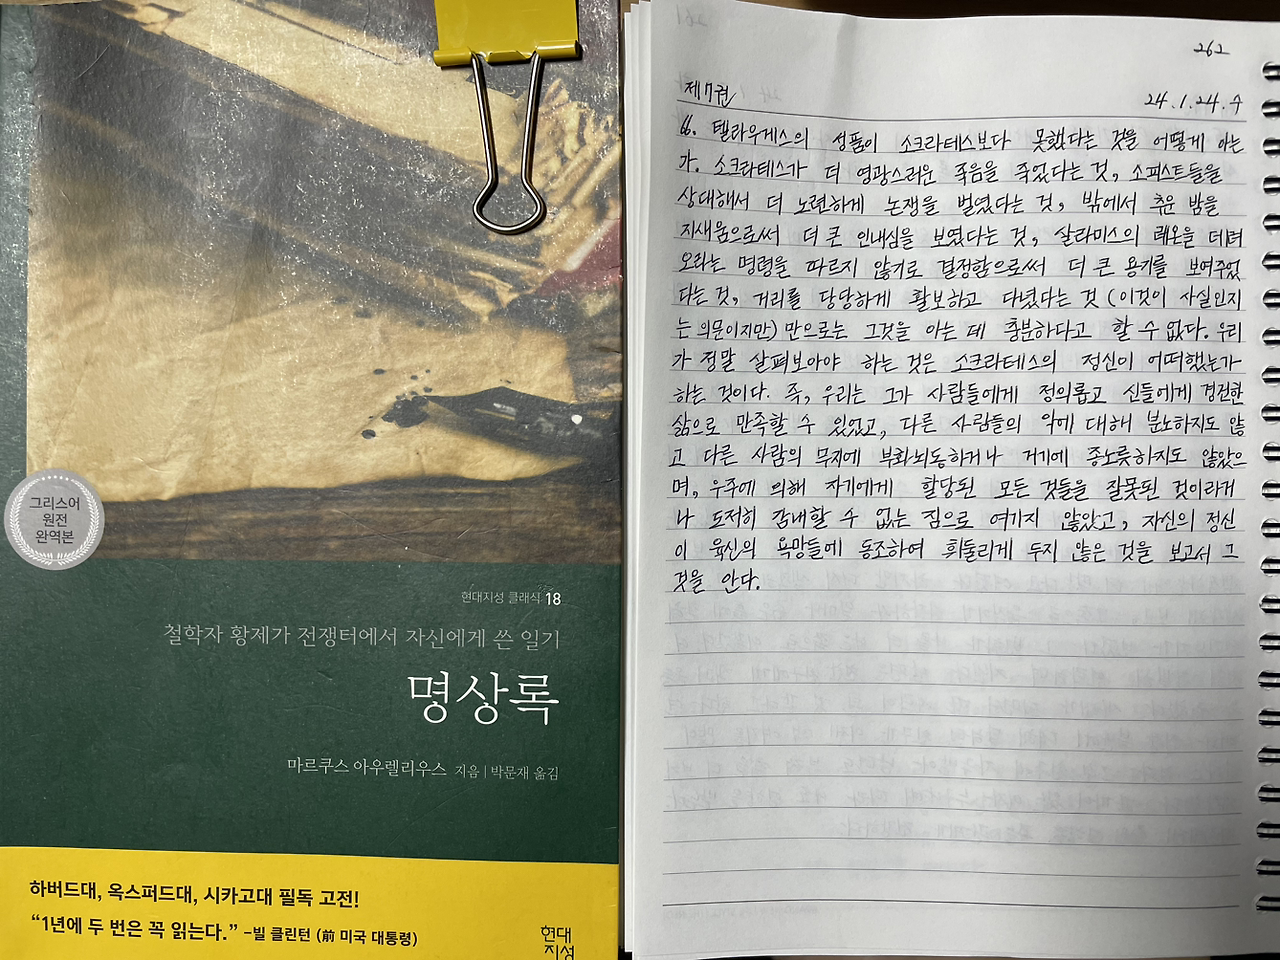 그리스어
원전
완역본
현대지성 클래식 18
철학자 황제가 전쟁터에서 자신에게 쓴 일기
명상록
마르쿠스 아우렐리우스 지음 | 박문재 옮김
하버드대, 옥스퍼드대, 시카고대 필독 고전!
“1년에 두 번은 꼭 읽는다.” –빌 클린턴 (前 미국 대통령)
현대
지성
262
제7권
24.1.24.수
66. 텔라우게스의 성품이 소크라테스보다 못했다는 것을 어떻게 아는
가. 소크라테스가 더 영광스러운 죽음을 죽었다는 것, 소피스트들을
상대해서 더 노련하게 논쟁을 벌였다는 것, 밖에서 추운 밤을
지새움으로써 더 큰 인내심을 보였다는 것, 살라미스의 레온을 데려
오라는 명령을 따르지 않기로 결정함으로써 더 큰 용기를 보여주었
다는 것, 거리를 당당하게 활보하고 다녔다는 것 (이것이 사실인지
는 의문이지만) 만으로는 그것을 아는 데 충분하다고 할 수 없다. 우리
가 정말 살펴보아야 하는 것은 소크라테스의 정신이 어떠했는가
하는 것이다. 즉, 우리는 그가 사람들에게 정의롭고 신들에게 경건한
삶으로 만족할 수 있었고, 다른 사람들의 악에 대해 분노하지도 않
고 다른 사람의 무지에 부화뇌동하거나 거기에 종노릇하지도 않았으
며, 우주에 의해 자기에게 할당된 모든 것들을 잘못된 것이라거
나 도저히 감내할 수 없는 짐으로 여기지 않았고, 자신의 정신
이 육신의 욕망들에 동조하여 휘둘리게 두지 않은 것을 보고서 그
것을 안다.